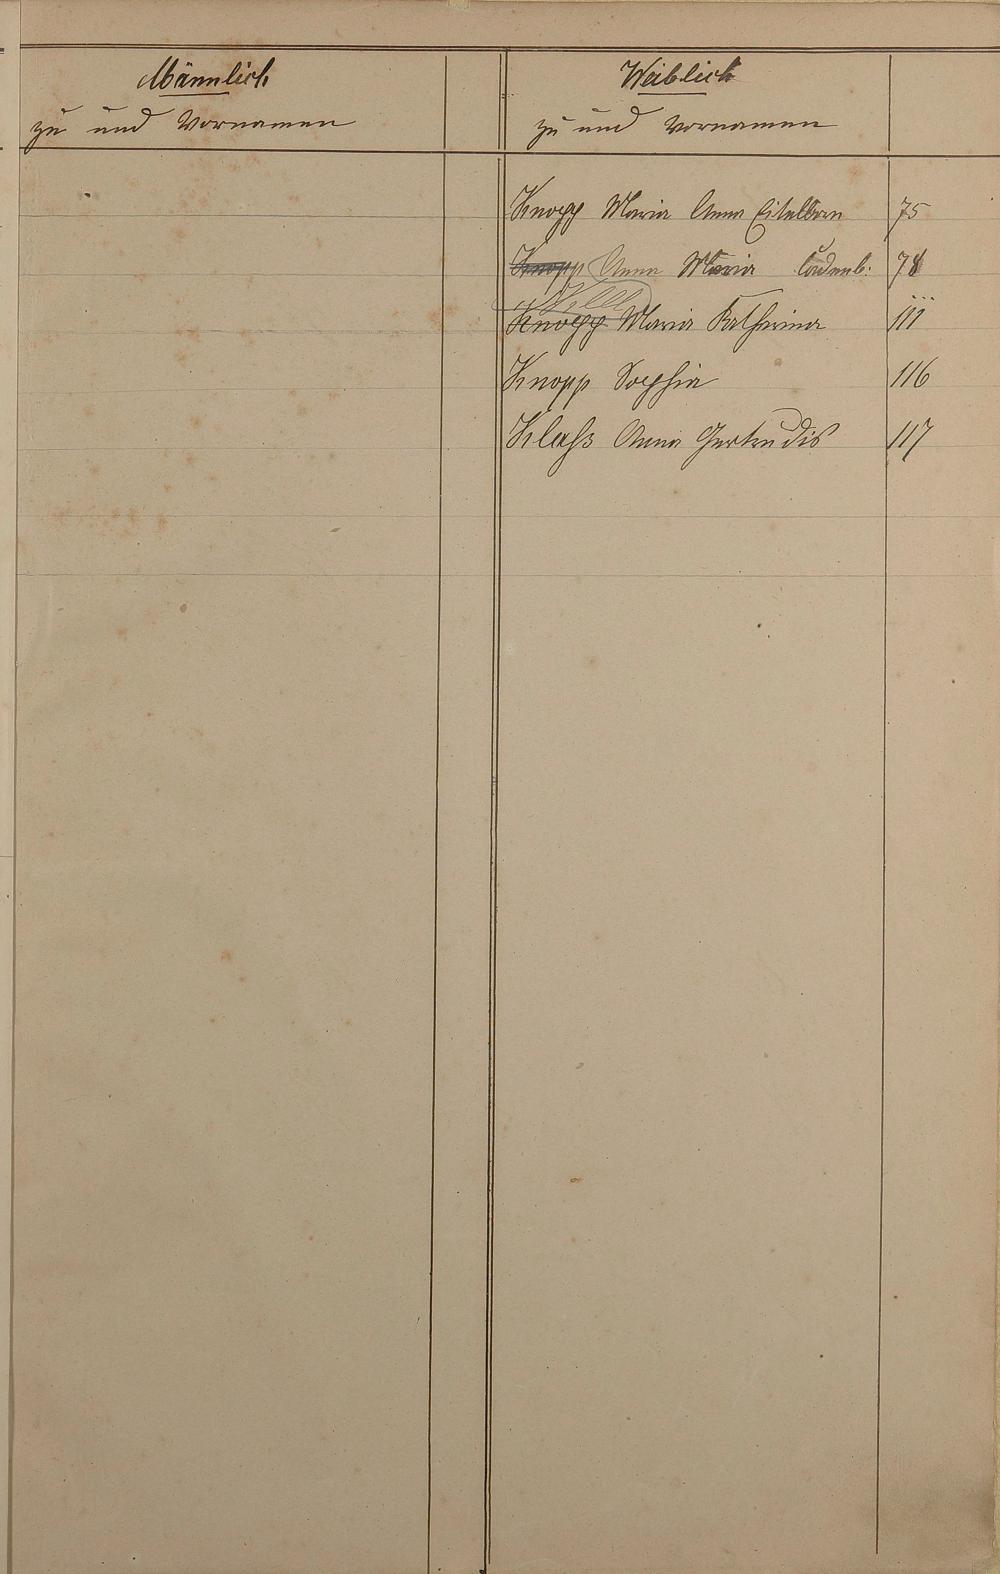 Männlich
zu und Vornamen
Weiblich
zu und Vornamen
Knopp Maria Anna Eitelborn 75
Knopp Anna Maria Cadenb: 78
Knopp Maria Katharina 111
Knopp Sophia 116
Klaß Anna Gertrudis 117